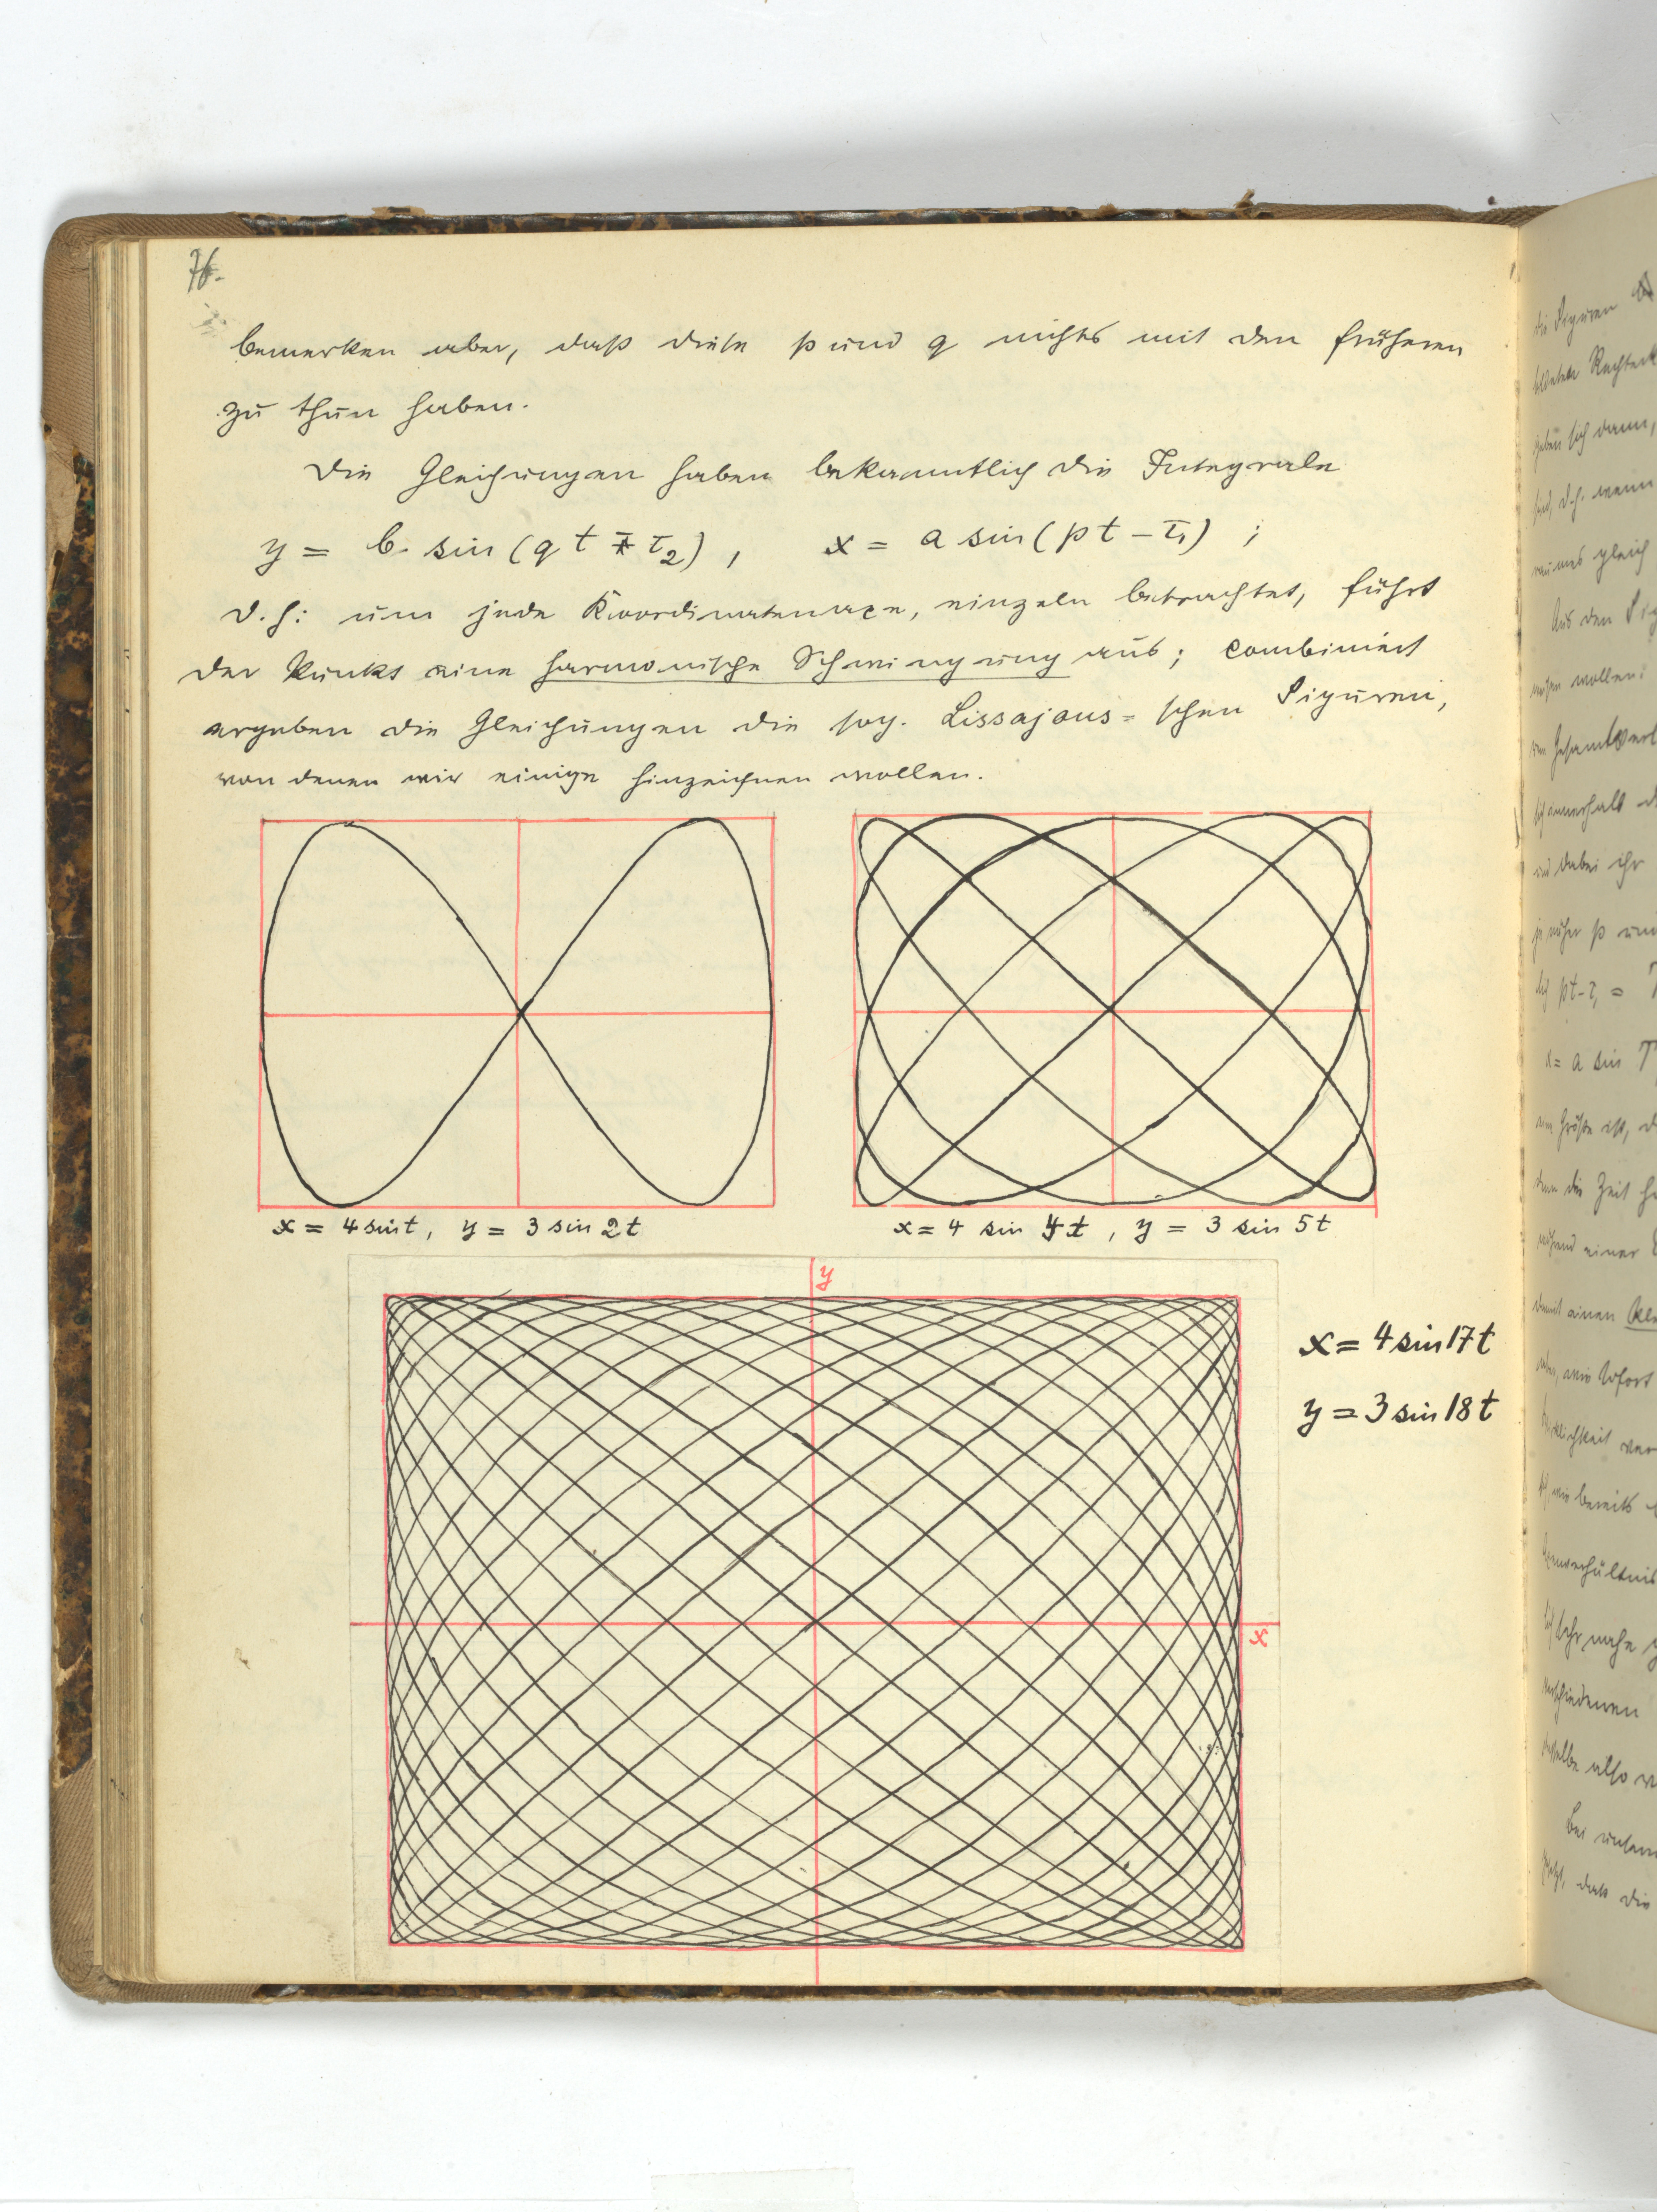 76.
bemerken aber, daß diese p und q nichts mit den früheren
zu thun haben.
Die Gleichungen haben bekanntlich die Integrale
y = b. sin (qt - τ₂), x = a sin (pt - τ₁) ;
d.h: um jede Koordinatenaxe, einzeln betrachtet, führt
der Punkt eine harmonische Schwingung aus; combiniert
ergeben die Gleichungen die sog. Lissajous-schen Figuren,
von denen wir einige hinzeichnen wollen.
x = 4 sin t, y = 3 sin 2t
x = 4 sin 4t, y = 3 sin 5t
y
x = 4 sin 17t
y = 3 sin 18t
x
die Figuren
Rechteck
sich dann,
d.h. wenn
gleich
Aus den Fig
wollen:
und dabei ihr
je näher p und
pt-τ₁ =
x = a sin
Größe ist, d
denn die Zeit
während einer
damit einen
sofort
wie bereits
sehr nahe
verschiedenen
dasselbe also
Bei unserm
daß die